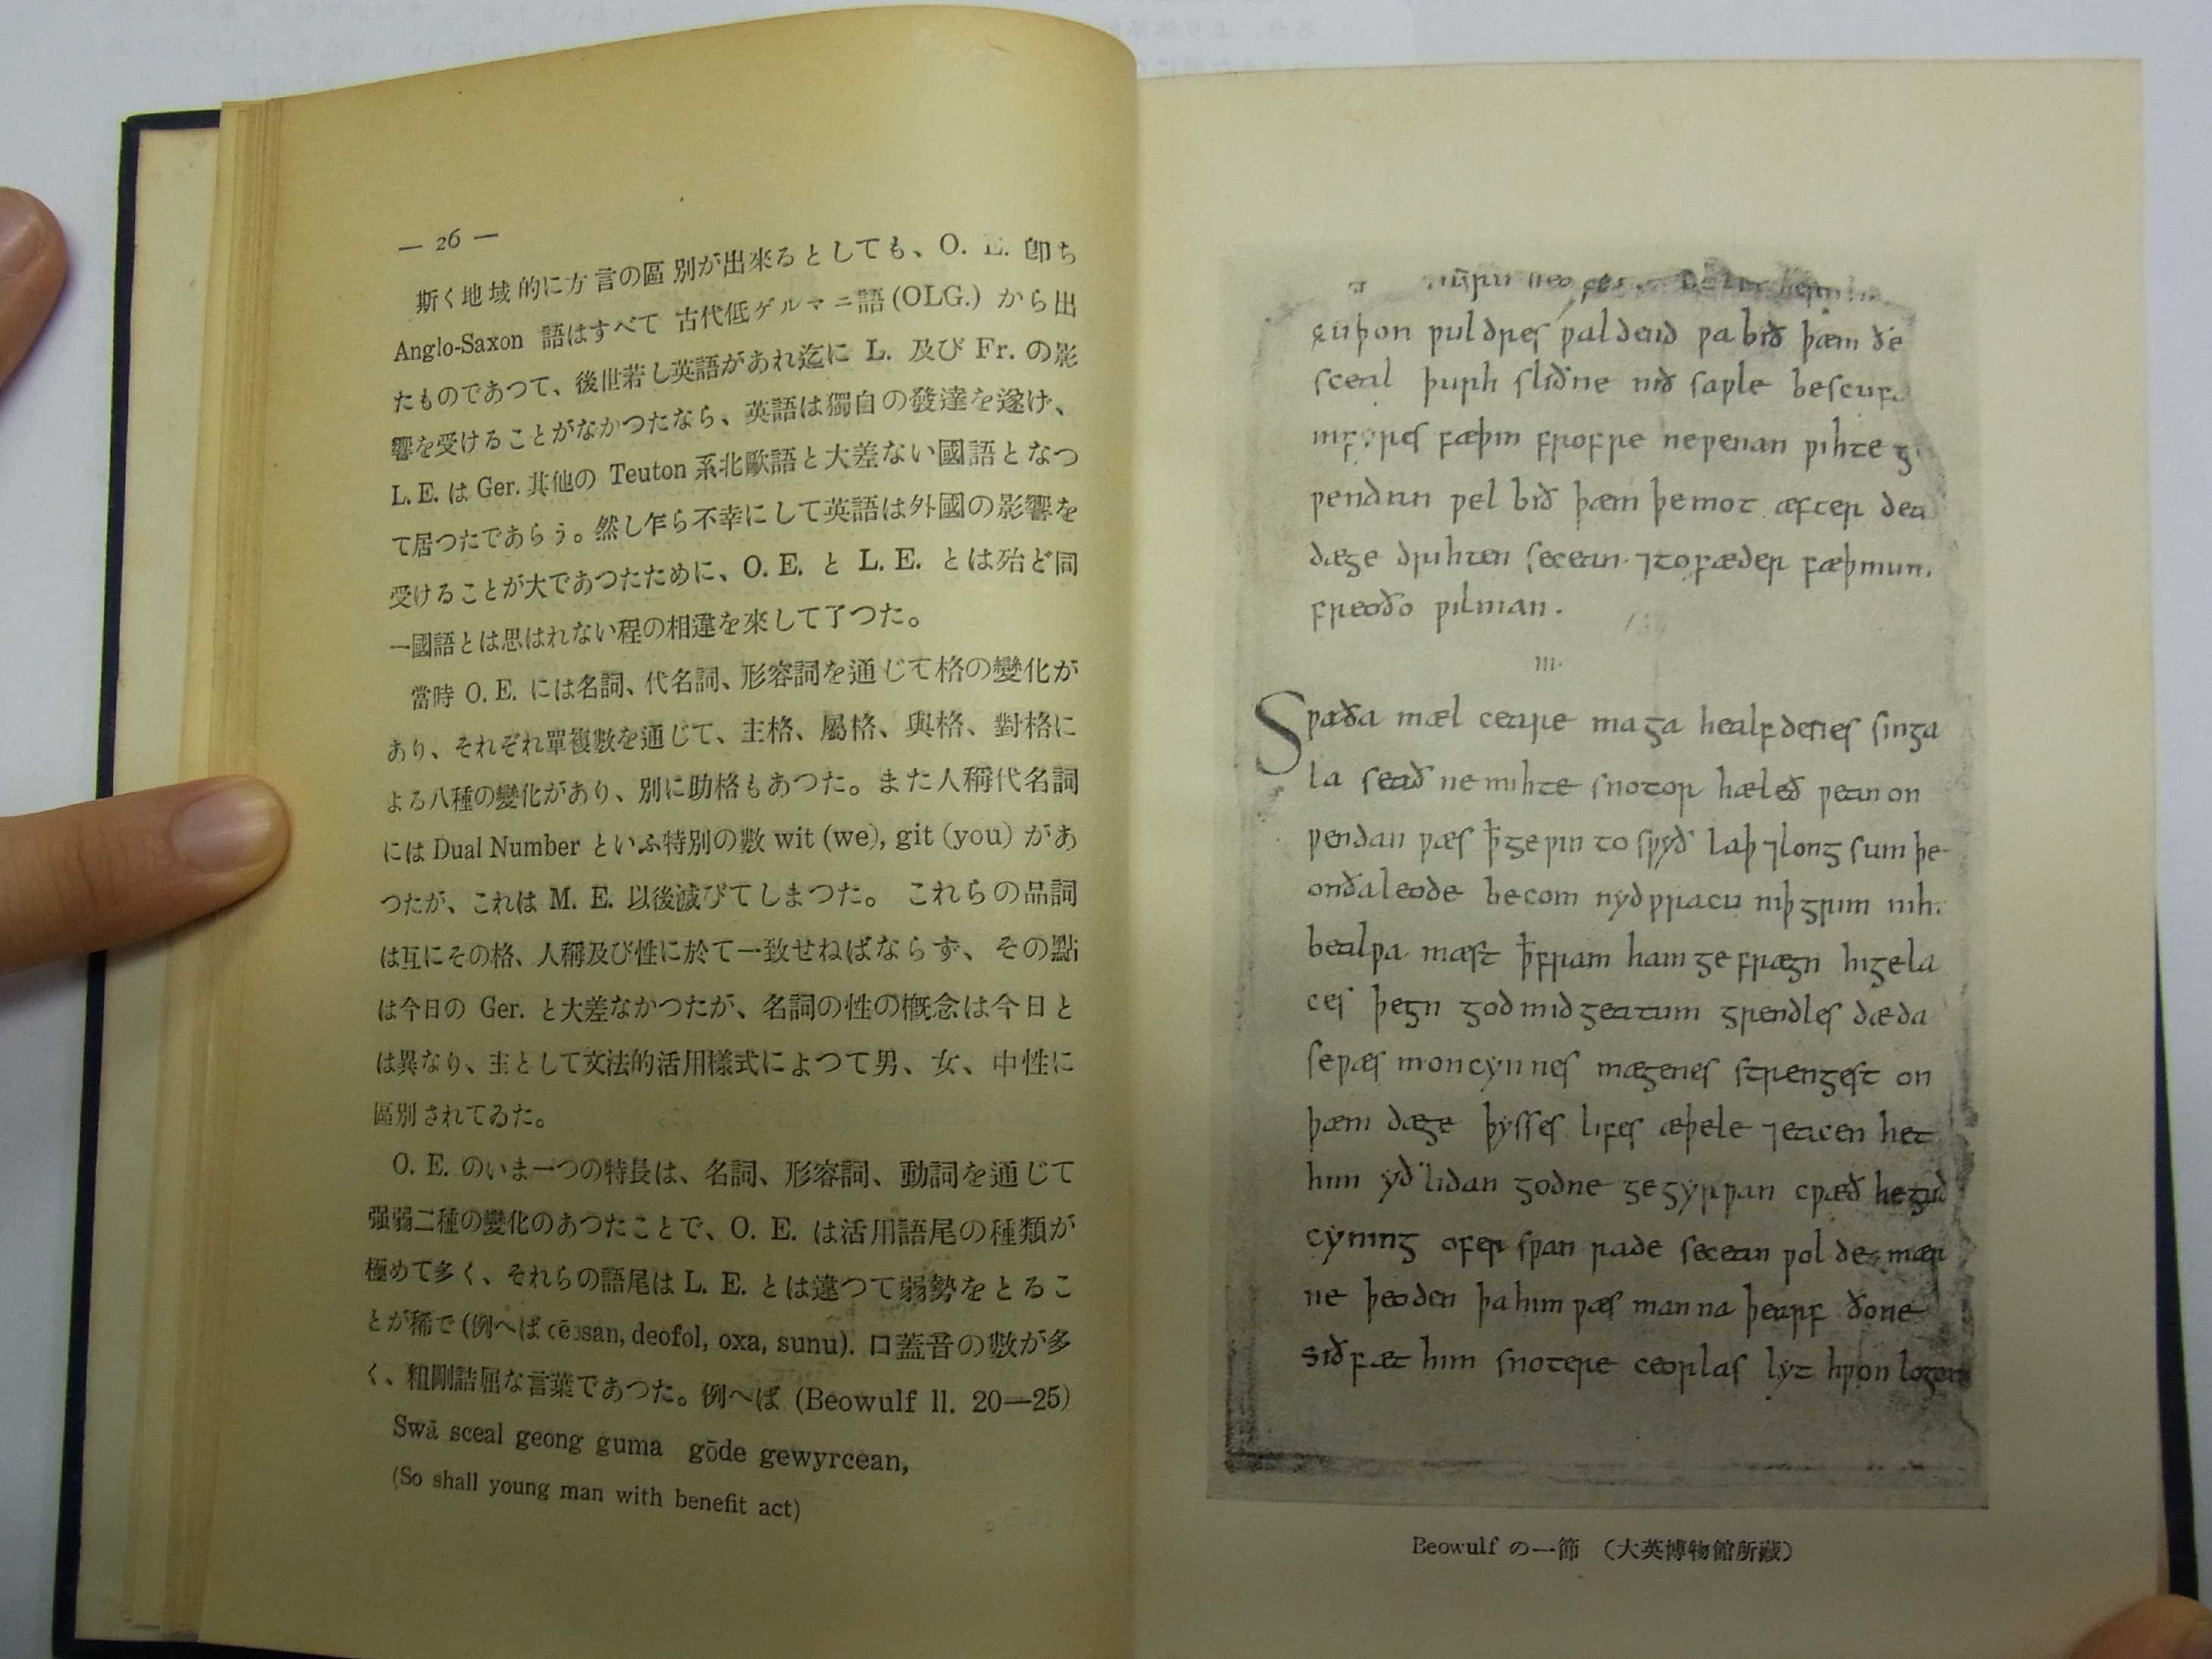 — 26 —
斯く地域的に方言の區別が出來るとしても、O. E. 卽ち
Anglo-Saxon 語はすべて 古代低ゲルマニ語 (OLG.) から出
たものであつて、後世若し英語があれ迄に L. 及び Fr. の影
響を受けることがなかつたなら、英語は獨自の發達を遂げ、
L. E. は Ger. 其他の Teuton 系北歐語と大差ない國語となつ
て居つたであらう。然し乍ら不幸にして英語は外國の影響を
受けることが大であつたために、O. E. と L. E. とは殆ど同
一國語とは思はれない程の相違を來して了つた。
當時 O. E. には名詞、代名詞、形容詞を通じて格の變化が
あり、それぞれ單複數を通じて、主格、屬格、與格、對格に
よる八種の變化があり、別に助格もあつた。また人稱代名詞
には Dual Number といふ特別の數 wit (we), git (you) があ
つたが、これは M. E. 以後滅びてしまつた。 これらの品詞
は互にその格、人稱及び性に於て一致せねばならず、その點
は今日の Ger. と大差なかつたが、名詞の性の槪念は今日と
は異なり、主として文法的活用樣式によつて男、女、中性に
區別されてゐた。
O. E. のいま一つの特長は、名詞、形容詞、動詞を通じて
强弱二種の變化のあつたことで、O. E. は活用語尾の種類が
極めて多く、それらの語尾は L. E. とは違つて弱勢をとるこ
とが稀で (例へば cēosan, deofol, oxa, sunu). 口蓋音の數が多
く、粗剛詰屈な言葉であつた。例へば (Beowulf ll. 20—25)
Swā sceal geong guma gōde gewyrcean,
(So shall young man with benefit act)
cuþon ƿuldres ƿaldend ƿa bið þæm ðe
sceal þurh sliðne nið saƿle bescuf
in fyres fæþm frofre ne ƿenan ƿihte g
ƿendan ƿel bið þæm þe mot æfter dea
dæge drihten secean ⁊ to fæder fæþmum
freoðo ƿilnian.
III.
Sƿa ða mæl ceare maga healfdenes singa
la seað ne mihte snotor hæleð ƿean on
ƿendan ƿæs ꝥ geƿin to sƿyð laþ ⁊ longsum þe
on ða leode becom nydƿracu niþ grim niht
bealƿa mæst ꝥ fram ham gefrægn higela
ces þegn god mid geatum grendles dæda
se ƿæs moncynnes mægenes strengest on
þæm dæge þysses lifes æþele ⁊ eacen het
him yðlidan godne gegyrƿan cƿæð he guð
cyning ofer sƿan rade secean ƿolde mær
ne þeoden þa him ƿæs manna þearf ðone
siðfæt him snotere ceorlas lyt hƿon logon
Beowulf の一節 （大英博物館所藏）